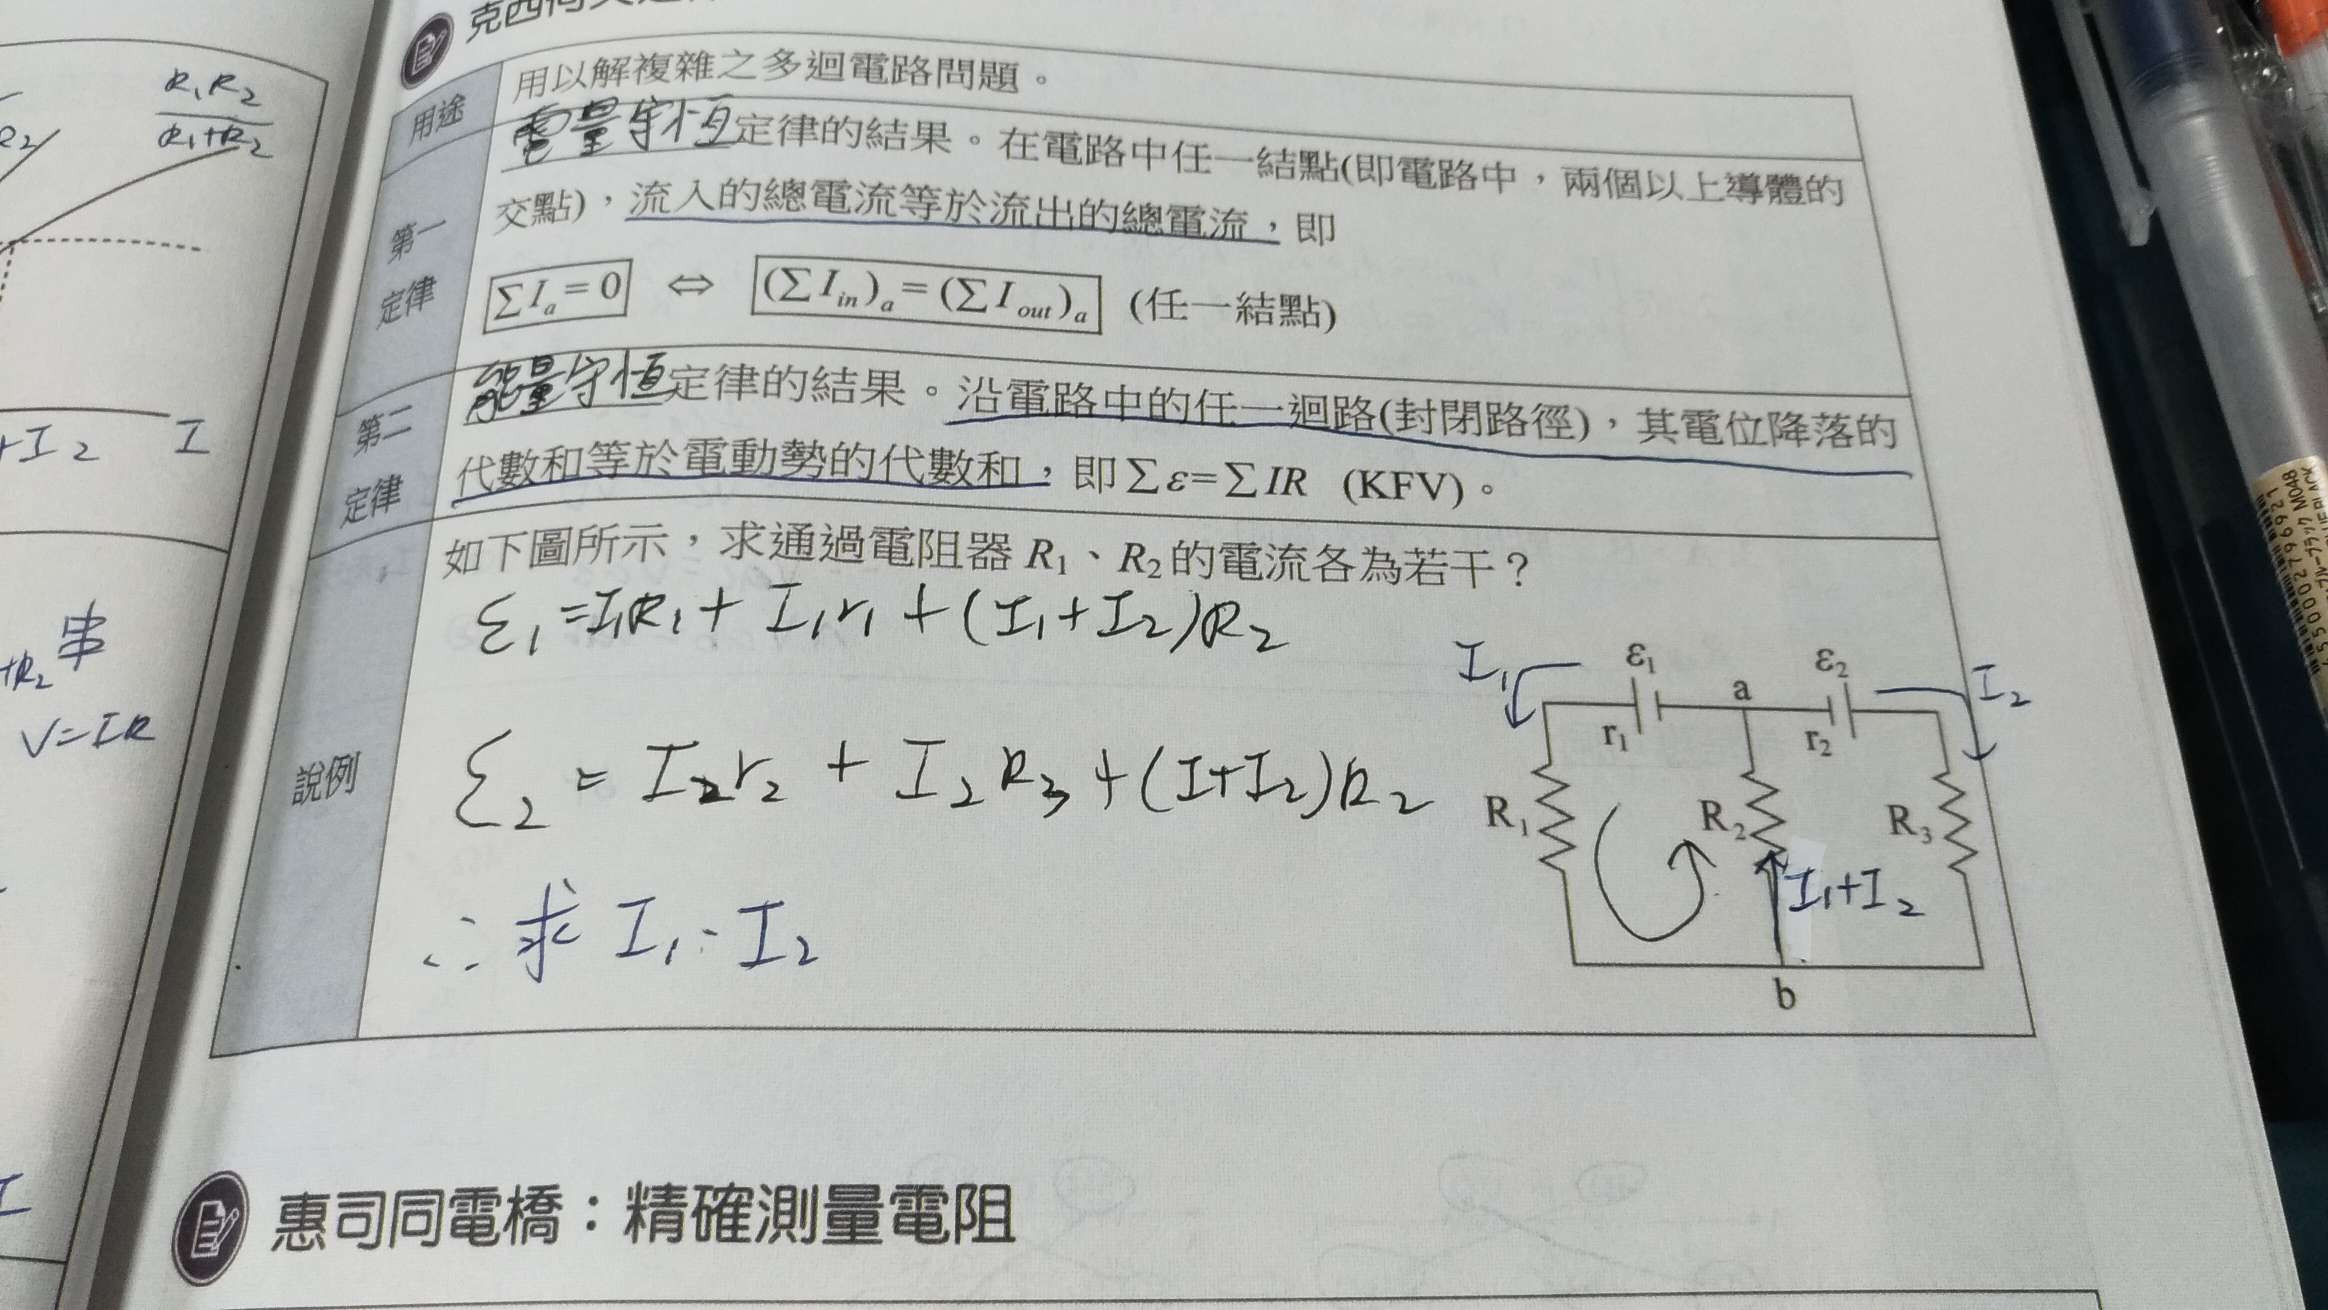 用途
用以解複雜之多迴電路問題。
第一
定律
電量守恆定律的結果。在電路中任一結點(即電路中，兩個以上導體的
交點)，流入的總電流等於流出的總電流，即
∑Iₐ=0 ⇔ (∑I_in)ₐ=(∑I_out)ₐ (任一結點)
第二
定律
能量守恆定律的結果。沿電路中的任一迴路(封閉路徑)，其電位降落的
代數和等於電動勢的代數和，即∑ε=∑IR (KFV)。
說例
如下圖所示，求通過電阻器 R₁、R₂的電流各為若干？
ε₁=I₁R₁+I₁r₁+(I₁+I₂)R₂
ε₂=I₂r₂+I₂R₃+(I+I₂)R₂
∴求 I₁、I₂
I₁ ε₁ a ε₂ I₂
r₁ r₂
R₁ R₂ R₃
I₁+I₂
b
惠司同電橋：精確測量電阻
R₁R₂
R₁+R₂
+I₂ I
串
+R₂
V=IR